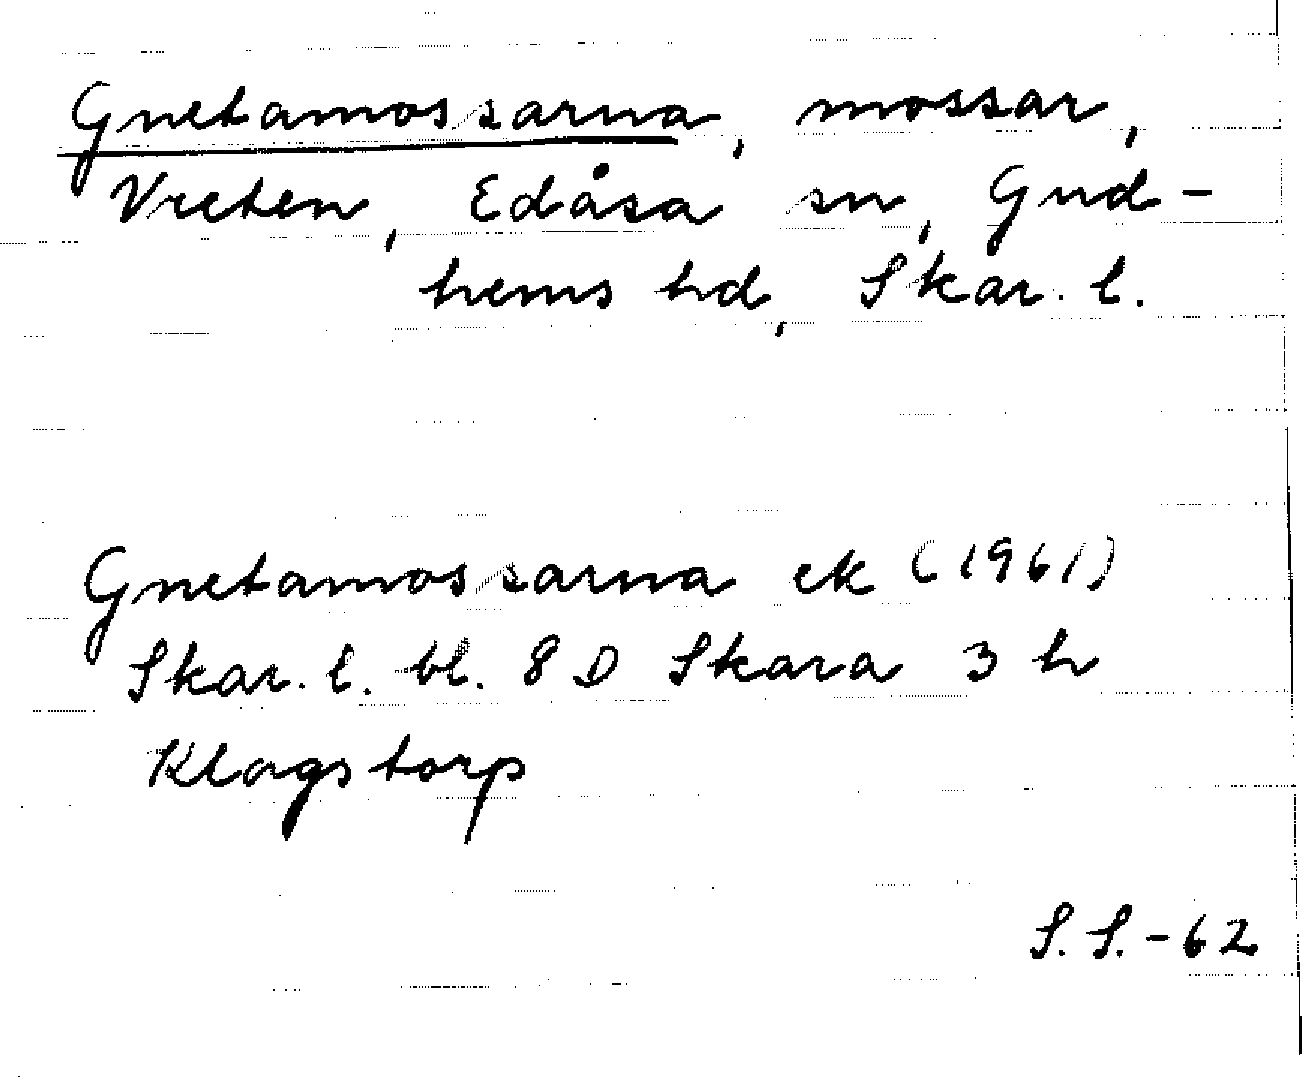 Gnetamossarna, mossar,
Vreten, Edåsa sn, Gud-
hems hd, Skar. l.
Gnetamossarna ek (1961)
Skar. l. bl. 8 D Skara 3 h
Klagstorp
S. S. - 62